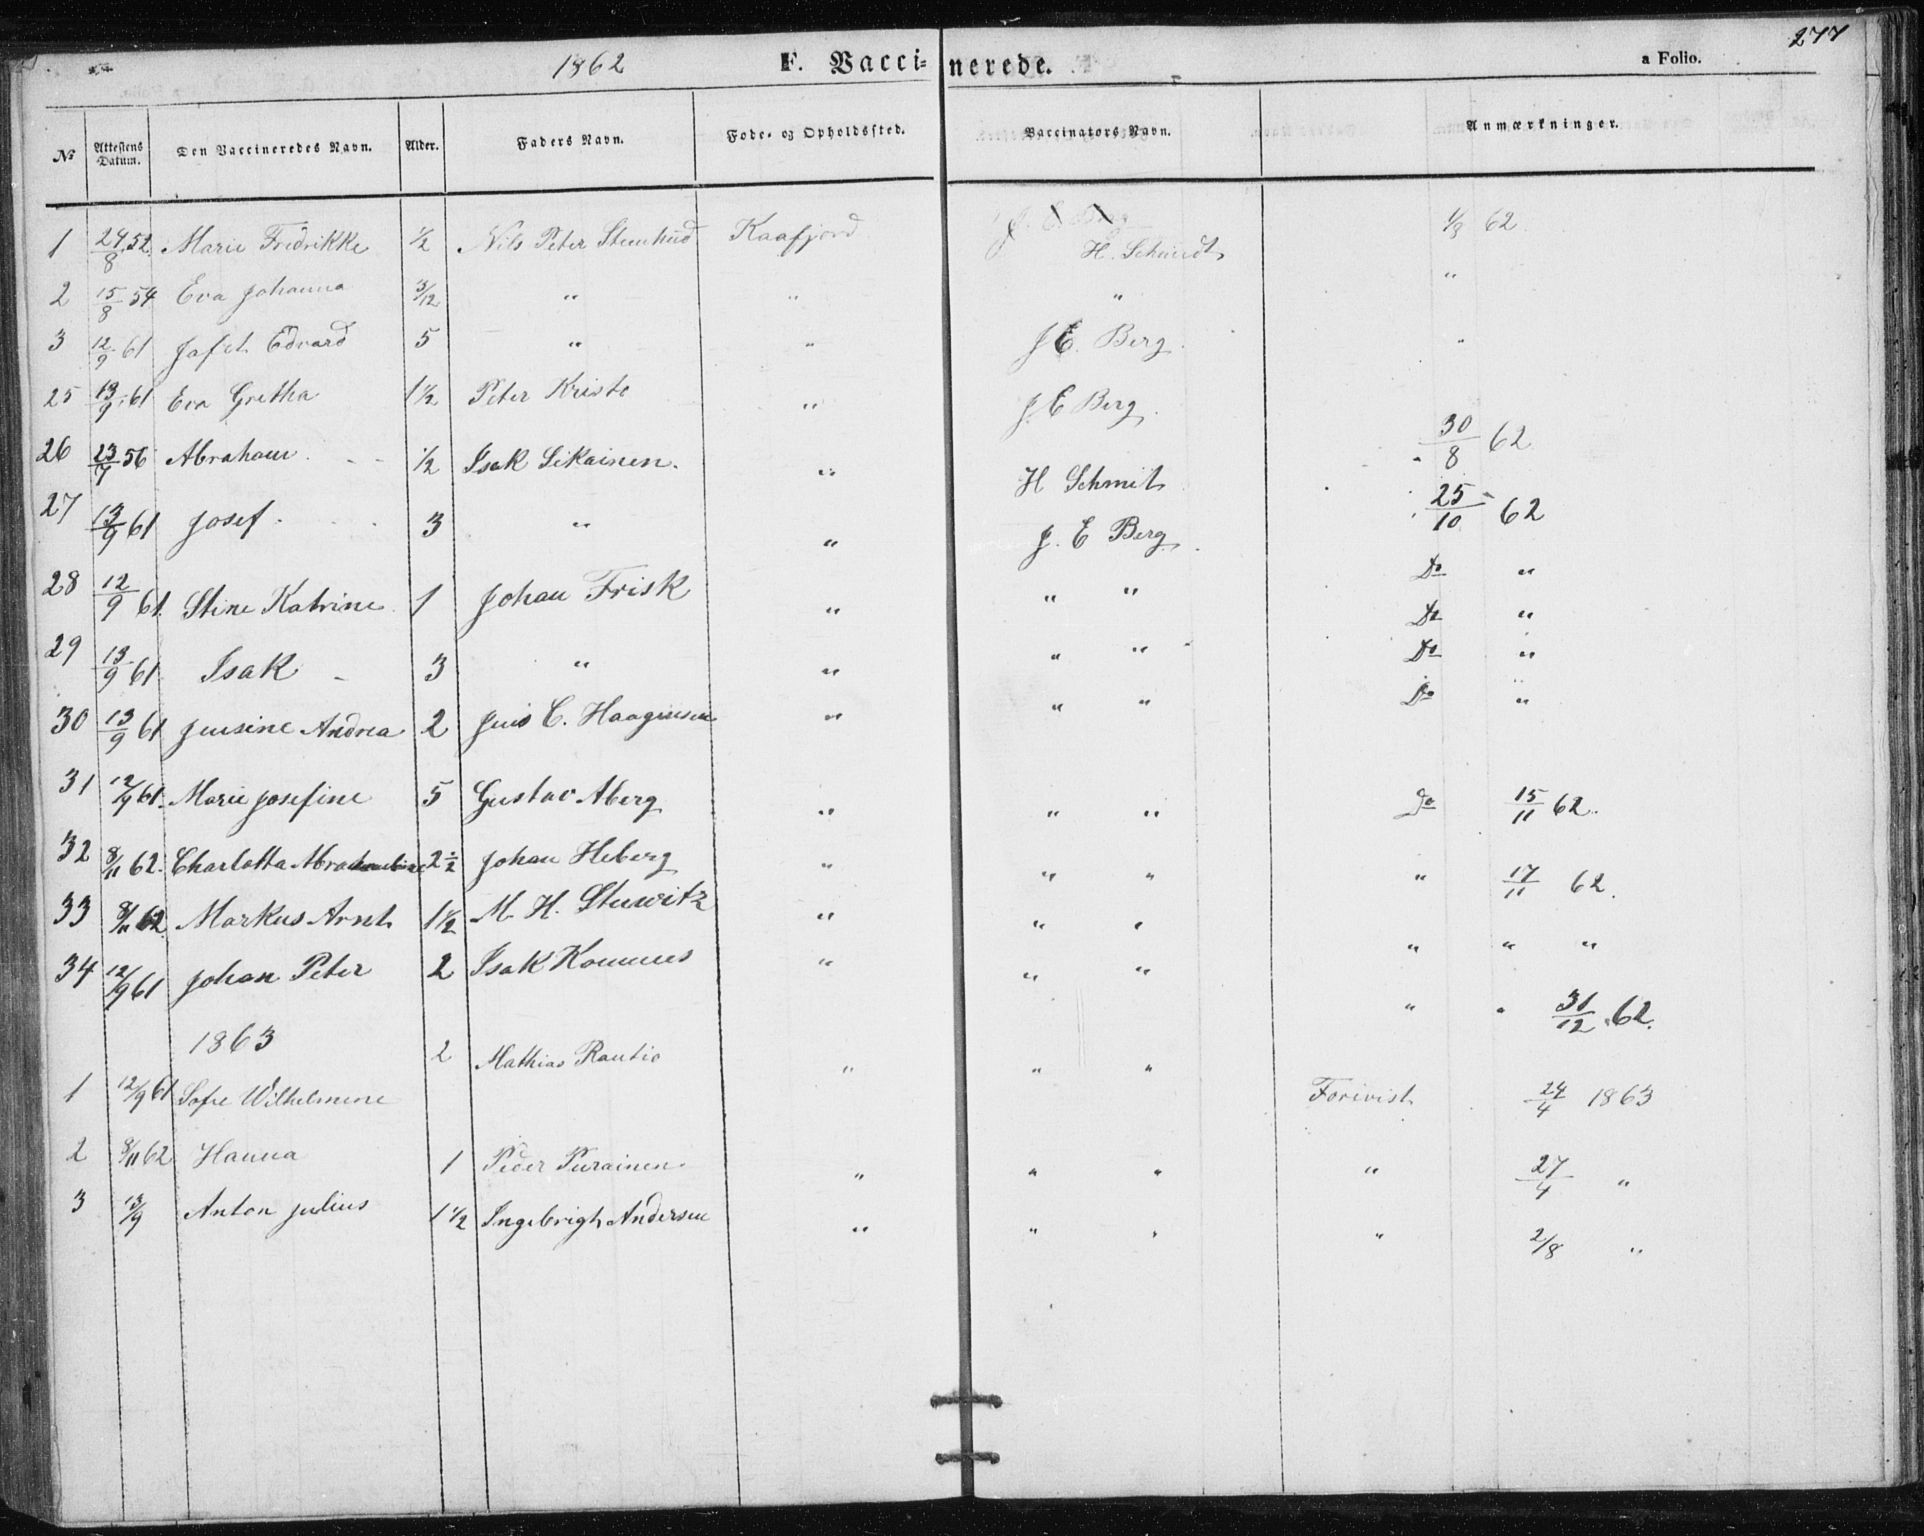 277
1862 F. Vaccinerede. a Folio.
№ Attestens Datum. Den Vaccineredes Navn. Alder. Faders Navn. Fode- og Opholdssted. Vaccinators Navn. Anmærkninger.
1 24/8 52 Marie Fredrikke 1/2 Nils Peter Kaafjord J. E Berg H. Schmidt 1/3 62
2 15/8 54 Eva Johanna 3/12 " " " "
3 12/9 61 Jafet Edvard 5 " " J E. Berg "
25 13/9 61 Eva Gretha 1 1/2 Peter Kristo " J. E Berg
26 23/7 56 Abraham 1/2 Isak Sikainen. " H Schmit 30/8 62
27 13/9 61 Josef 3 " " J. E Berg 25/10 62
28 12/9 61 Stine Katrine 1 Johan Frisk " " " Do "
29 13/9 61 Isak 3 " " " " Do "
30 13/9 61 Jensine Andrea 2 Jens C. Haagensen " " " Do "
Do "
31 12/9 61 Marie Josefine 5 Gustav Aberg " " " Do 15/11 62.
32 8/11 62. Charlotta 2 1/2 Johan Heberg " " " " 17/11 62.
33 8/11 62 Markus Arnt 1 1/2 M. H. Stuwitz " " " " " "
34 12/9 61 Johan Peter 2 Isak " " " " " 31/12 62.
1863
1 12/9 61 Sofie Wilhelmine 2 Mathias Rautio " " " Forevist 24/4 1863
2 8/11 62 Hanna 1 Peder Purainen " " " " 27/4 "
3 13/9 Anton Julius 1 1/2 Ingebrigt Andersen " " " " 2/8 "